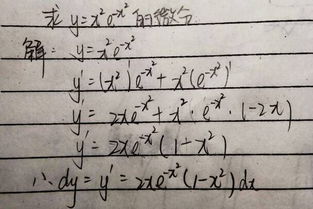 求 y=x²e^{-x²} 的微分
解: y=x²e^{-x²}
y'=(x²)'e^{-x²}+x²(e^{-x²})'
y'=2xe^{-x²}+x²·e^{-x²}·(-2x)
y'=2xe^{-x²}(1-x²)
∴dy=y'=2xe^{-x²}(1-x²)dx